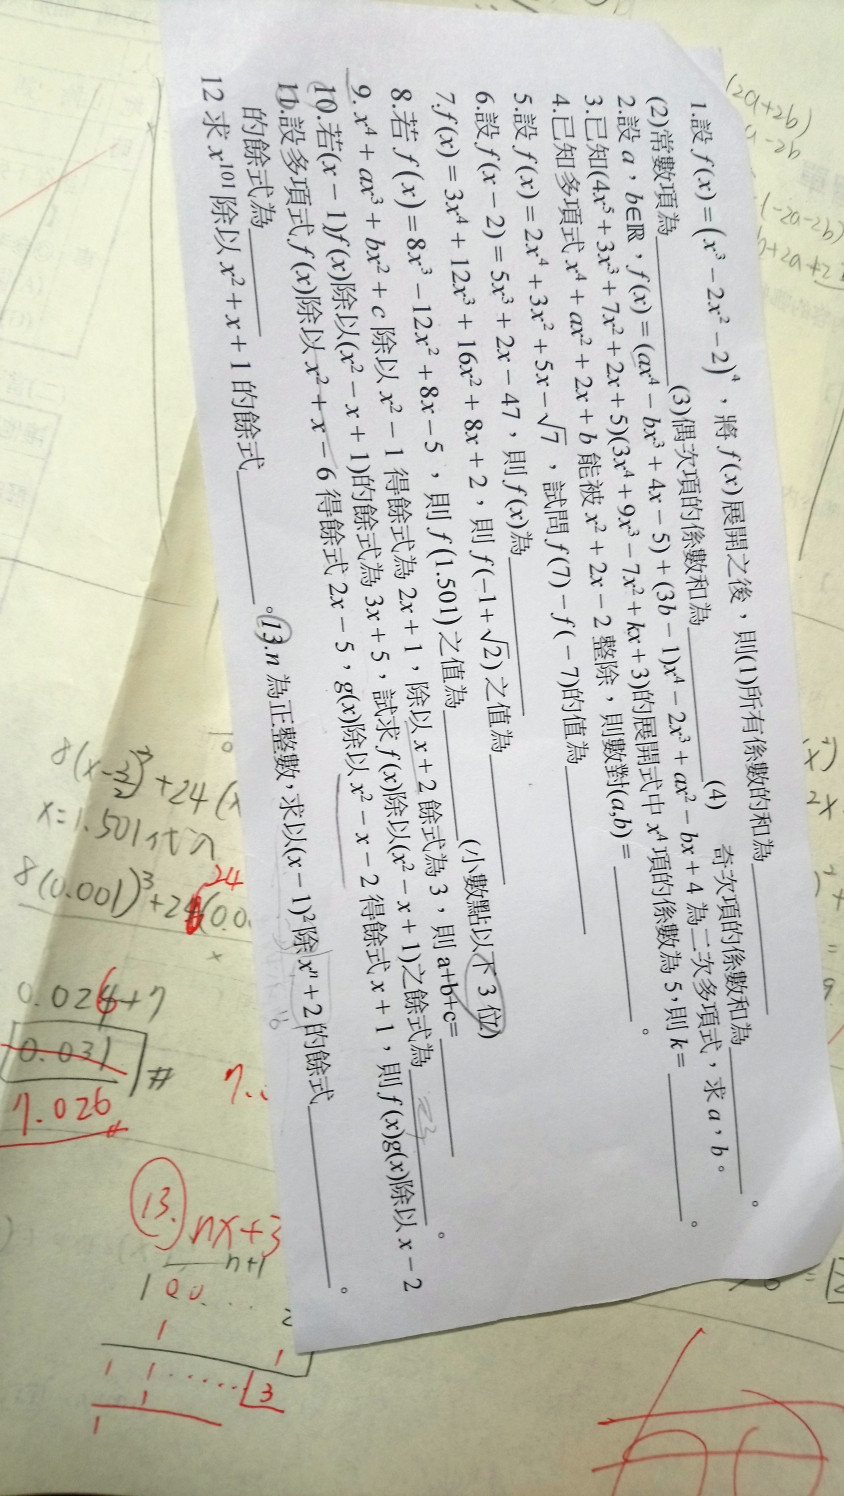 1.設 f(x) = (x³ − 2x² − 2)⁴，將 f(x) 展開之後，則(1)所有係數的和為
(2)常數項為 (3)偶次項的係數和為 (4) 奇次項的係數和為 。
2.設 a，b∈ℝ，f(x) = (ax⁴ − bx³ + 4x − 5) + (3b − 1)x⁴ − 2x³ + ax² − bx + 4 為二次多項式，求 a，b。
3.已知(4x⁵ + 3x³ + 7x² + 2x + 5)(3x⁴ + 9x³ − 7x² + kx + 3)的展開式中 x⁴ 項的係數為 5，則 k = 。
4.已知多項式 x⁴ + ax² + 2x + b 能被 x² + 2x − 2 整除，則數對(a,b) = 。
5.設 f(x) = 2x⁴ + 3x² + 5x − √7，試問 f(7) − f(− 7)的值為
6.設 f(x − 2) = 5x³ + 2x − 47，則 f(x)為
7.f(x) = 3x⁴ + 12x³ + 16x² + 8x + 2，則 f(−1 + √2) 之值為
8.若 f(x) = 8x³ − 12x² + 8x − 5，則 f(1.501) 之值為 (小數點以下 3 位)
9. x⁴ + ax³ + bx² + c 除以 x² − 1 得餘式為 2x + 1，除以 x + 2 餘式為 3，則 a+b+c= 。
10.若(x − 1)f(x)除以(x² − x + 1)的餘式為 3x + 5，試求 f(x)除以(x² − x + 1)之餘式為 。
11.設多項式 f(x)除以 x² + x − 6 得餘式 2x − 5，g(x)除以 x² − x − 2 得餘式 x + 1，則 f(x)g(x)除以 x − 2
的餘式為
12 求 x¹⁰¹ 除以 x² + x + 1 的餘式 。13.n 為正整數，求以(x − 1)²除 xⁿ + 2 的餘式 。
(2a+2b)
(-2a-2b)
x=1.501代入
8(0.001)³+24
24
0.026+7
0.031
#
7.026
13. nx+3
n+1
1 0 0 ....
1
1 1 ...... 3
1
1